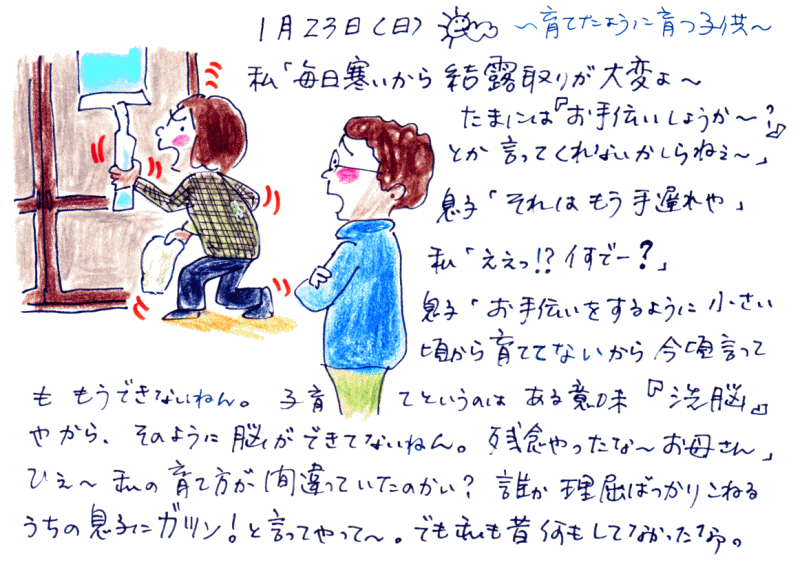 1月23日（日） ～育てたように育つ子供～
私「毎日寒いから 結露取りが大変よ～
たまには『お手伝いしようか～？』
とか言ってくれないかしらねぇ～」
息子「それはもう手遅れや」
私「ええっ!? なんでー？」
息子「お手伝いをするように小さい
頃から育ててないから今頃言って
ももうできないねん。子育てというのは ある意味『洗脳』
やから、そのように脳ができてないねん。残念やったな～お母さん」
ひぇ～私の育て方が間違っていたのかい？誰か理屈ばっかりこねる
うちの息子にガツン！と言ってやって～。でも私も昔何もしてなかったなぁ。